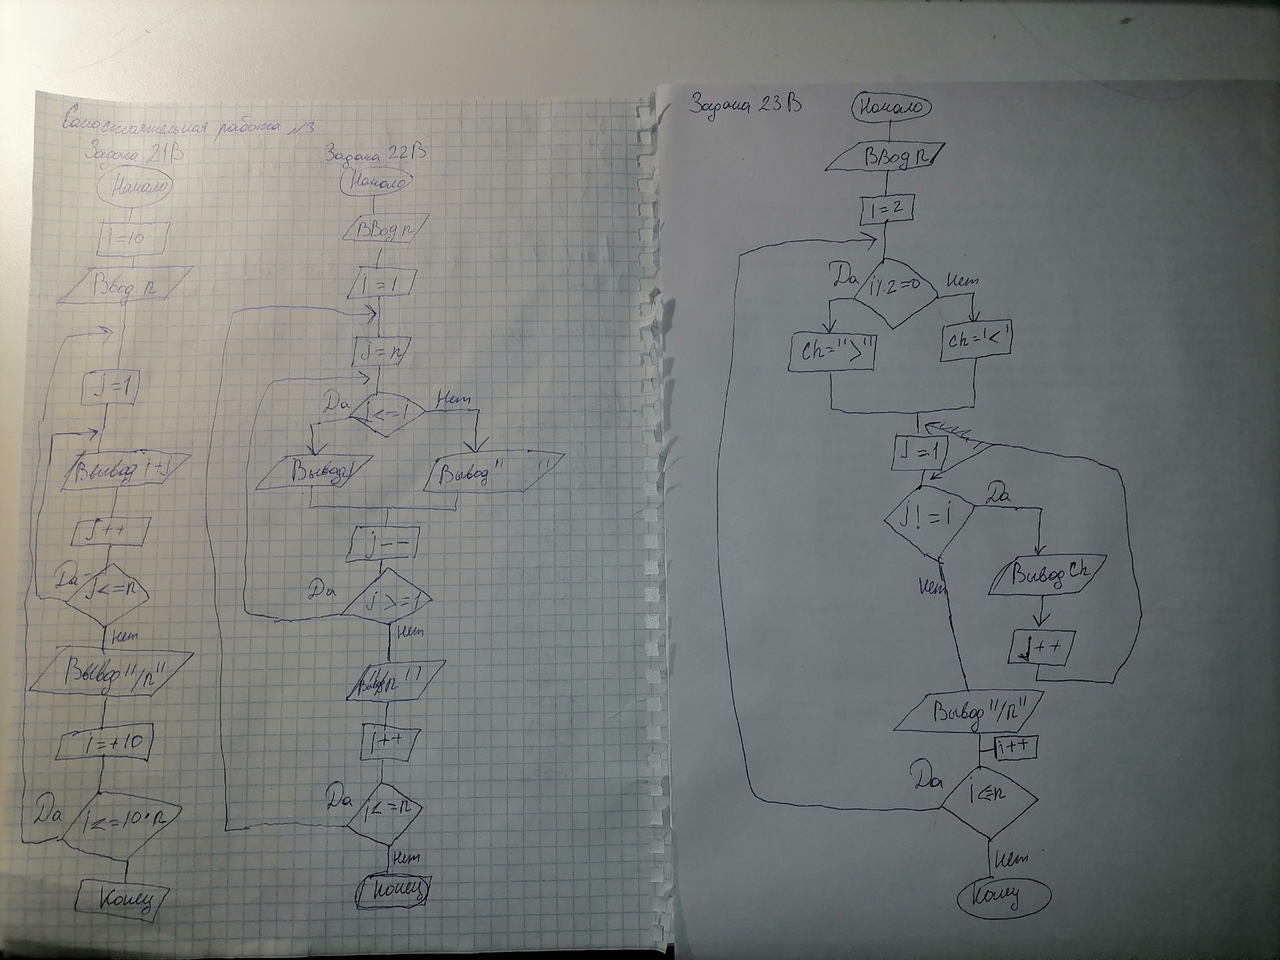 Самостоятельная работа №3
Задача 21В
Начало
i=10
Ввод n
j=1
Вывод i+j
j++
Да
j<=n
Нет
Вывод "/n"
i=+10
Да
i<=10*n
Конец
Задача 22В
Начало
ВВод n
i=1
j=n
Да
j<=i
Нет
Вывод j
Вывод " "
j--
Да
j>=1
Нет
i++
Да
i<=n
Нет
Конец
Задача 23В
Начало
ВВод n
i=2
Да
i%2=0
Нет
ch=">"
ch='<'
j=1
j!=i
Да
Вывод ch
Нет
j++
Вывод "/n"
i++
Да
i<=n
Нет
Конец